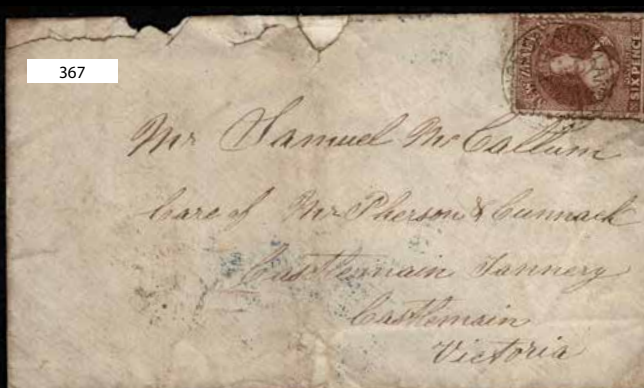 367
SIX PENCE
Mr Samuel McCallum
Care of McPherson & Cunnack
Castlemain Tannery
Castlemain
Victoria